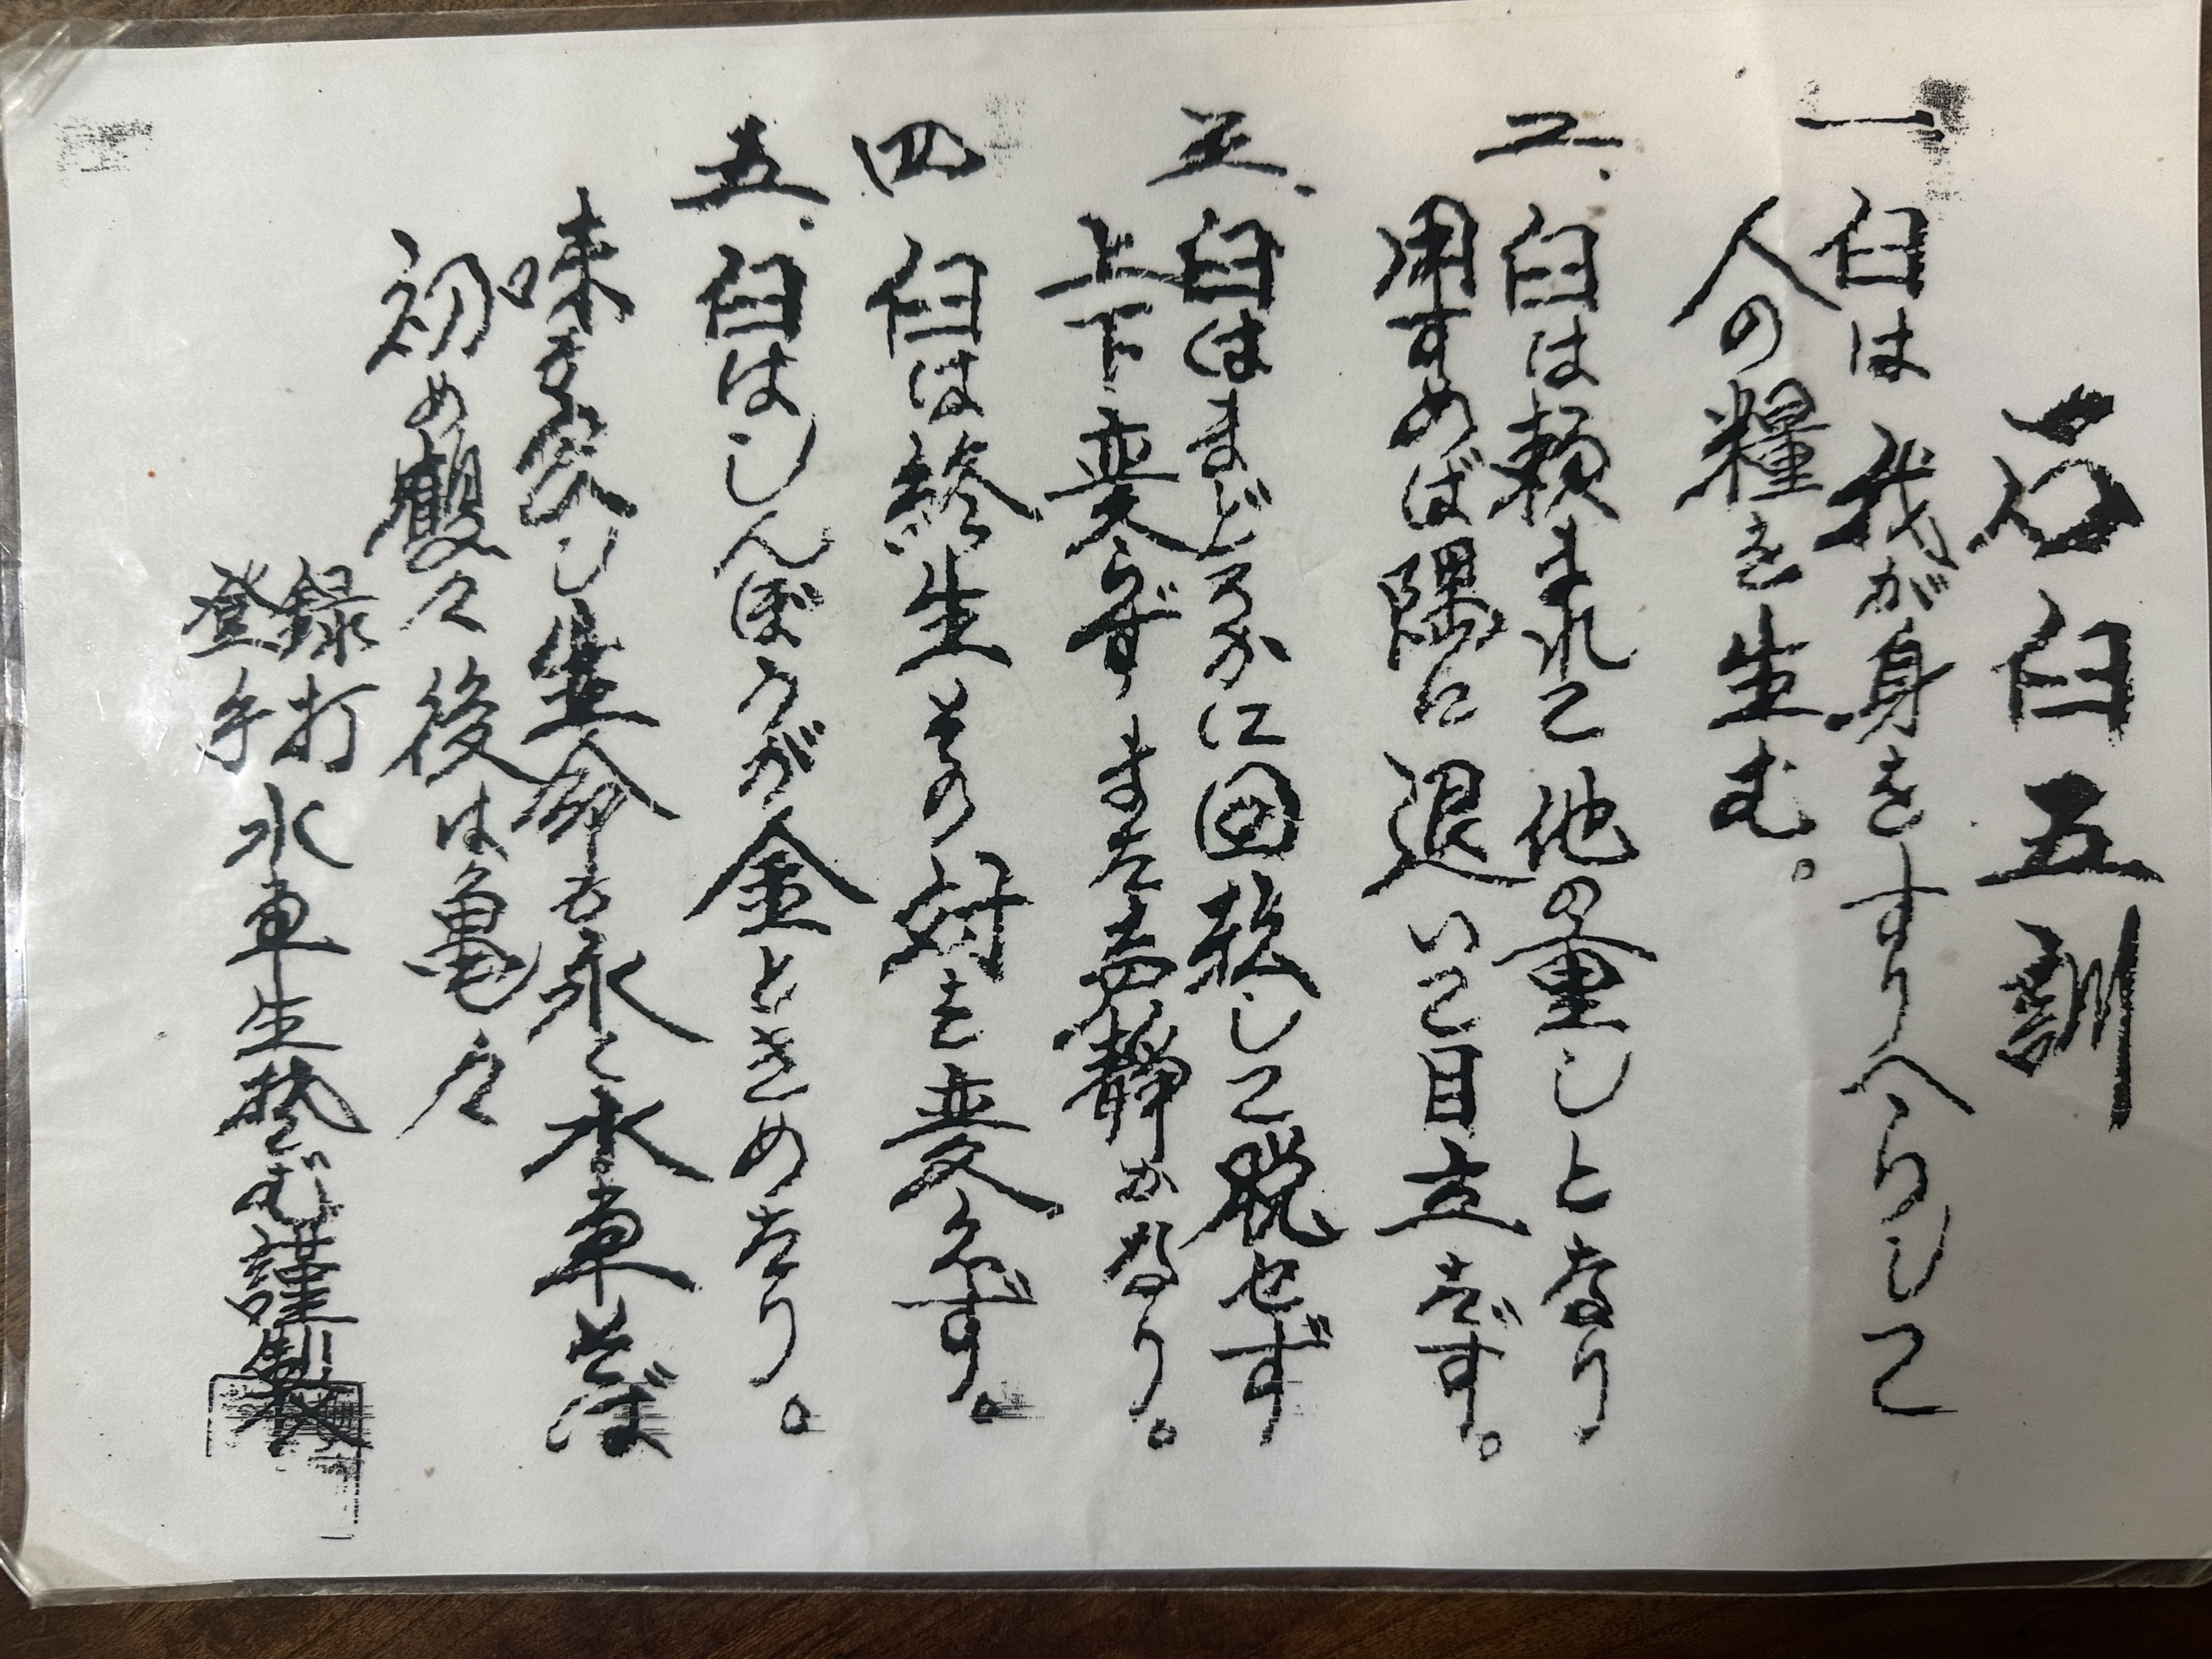 石臼五訓
一臼は我が身をすりへらして
人の糧を生む。
二、臼は頼まれて他の重しとなり
用すめば隅に退いて目立たず。
三、臼はまどろかに回転して脱せず
上下変らず、また声静かなり。
四臼は終生その対を変えず。
五、臼はしんぼうが金ときめたり。
味も久し生命も永く水車そば
初め鶴々後は亀々
登録
手打
水車生そば謹製